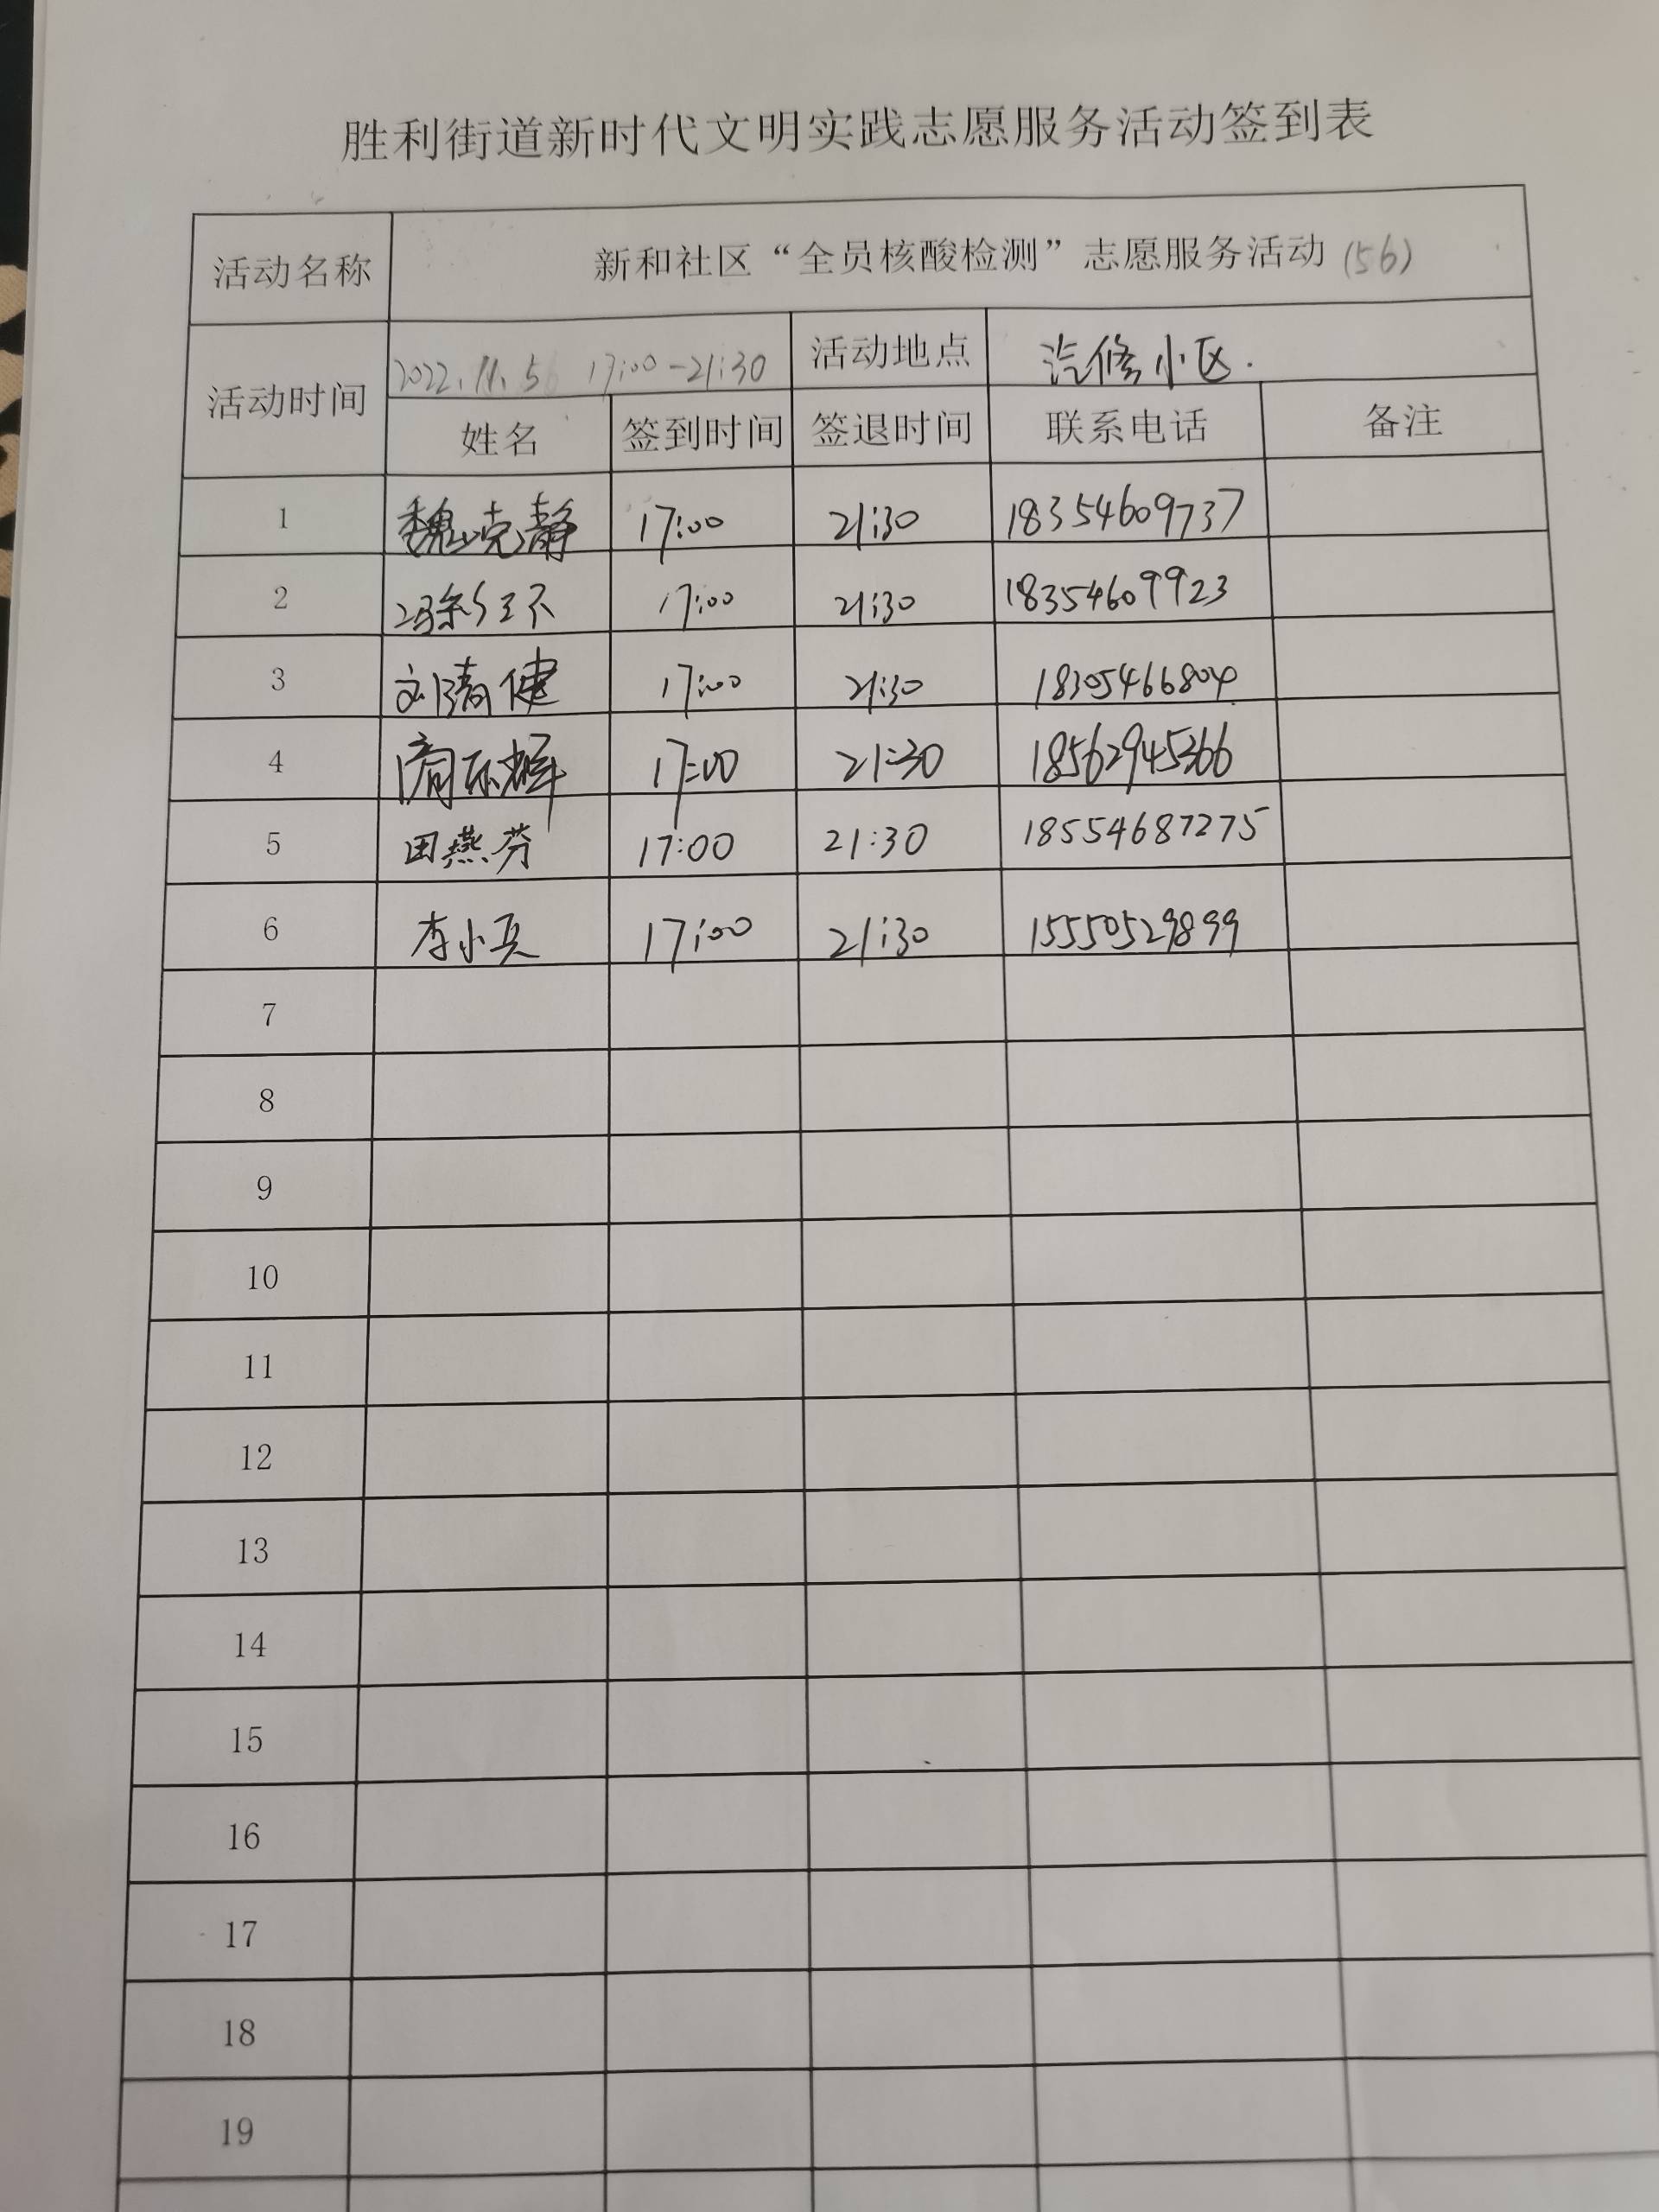 胜利街道新时代文明实践志愿服务活动签到表
活动名称 新和社区“全员核酸检测”志愿服务活动(56)
活动时间 2022.11.5 17:00-21:30 活动地点 汽修小区.
姓名 签到时间 签退时间 联系电话 备注
1 魏克静 17:00 21:30 18354609737
2 17:00 21:30 18354609923
3 刘清健 17:00 21:30 18305466804
4 17:00 21:30 18562945366
5 田燕芬 17:00 21:30 18554687275
6 李小兵 17:00 21:30 15550529899
7
8
9
10
11
12
13
14
15
16
17
18
19